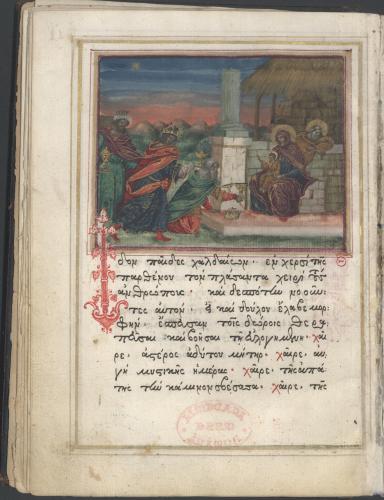 Ἴδον παῖδες χαλδαίων· ἐν χερσὶ τῆς
παρθένου τὸν πλάσαντα χειρὶ τοὺς
ἀνθρώπους· καὶ δεσπότην νοοῦν
τες αὐτὸν· εἰ καὶ δούλου ἔλαβε μορ
φήν· ἔσπευσαν τοῖς δώροις θερα
πεῦσαι καὶ βοῆσαι τῇ εὐλογημένῃ· χαῖ
ρε, ἀστέρος ἀδύτου μήτηρ· χαῖρε, αὐ
γὴ μυστικῆς ἡμέρας· χαῖρε, τῆς ἀπά
της τὴν κάμινον σβέσασα· χαῖρε, τῆς